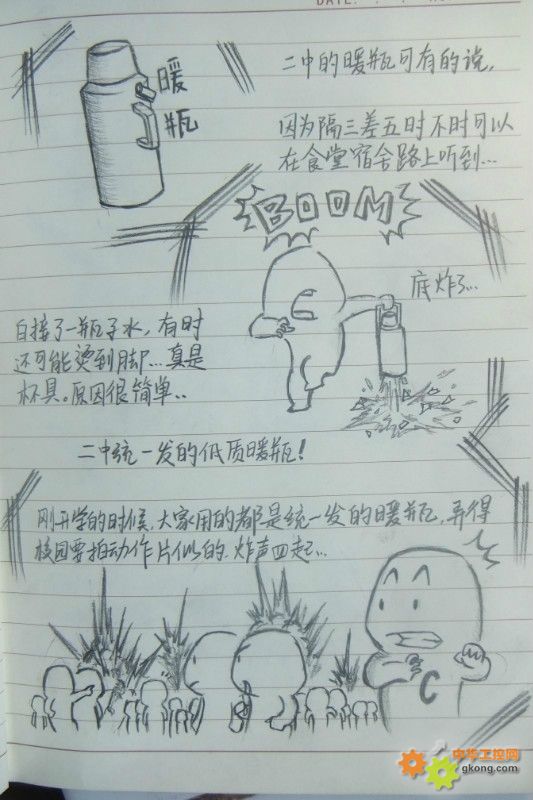 DATE:
二中的暖瓶可有的说，
暖
瓶
因为隔三差五时不时可以
在食堂宿舍路上听到…
BOOM
底炸了…
白接了一瓶子水，有时
还可能烫到脚…真是
杯具。原因很简单..
二中统一发的低质暖瓶！
刚开学的时候，大家用的都是统一发的暖瓶，弄得
校园要拍动作片似的，炸声四起…
C
中华工控网
gkong.com